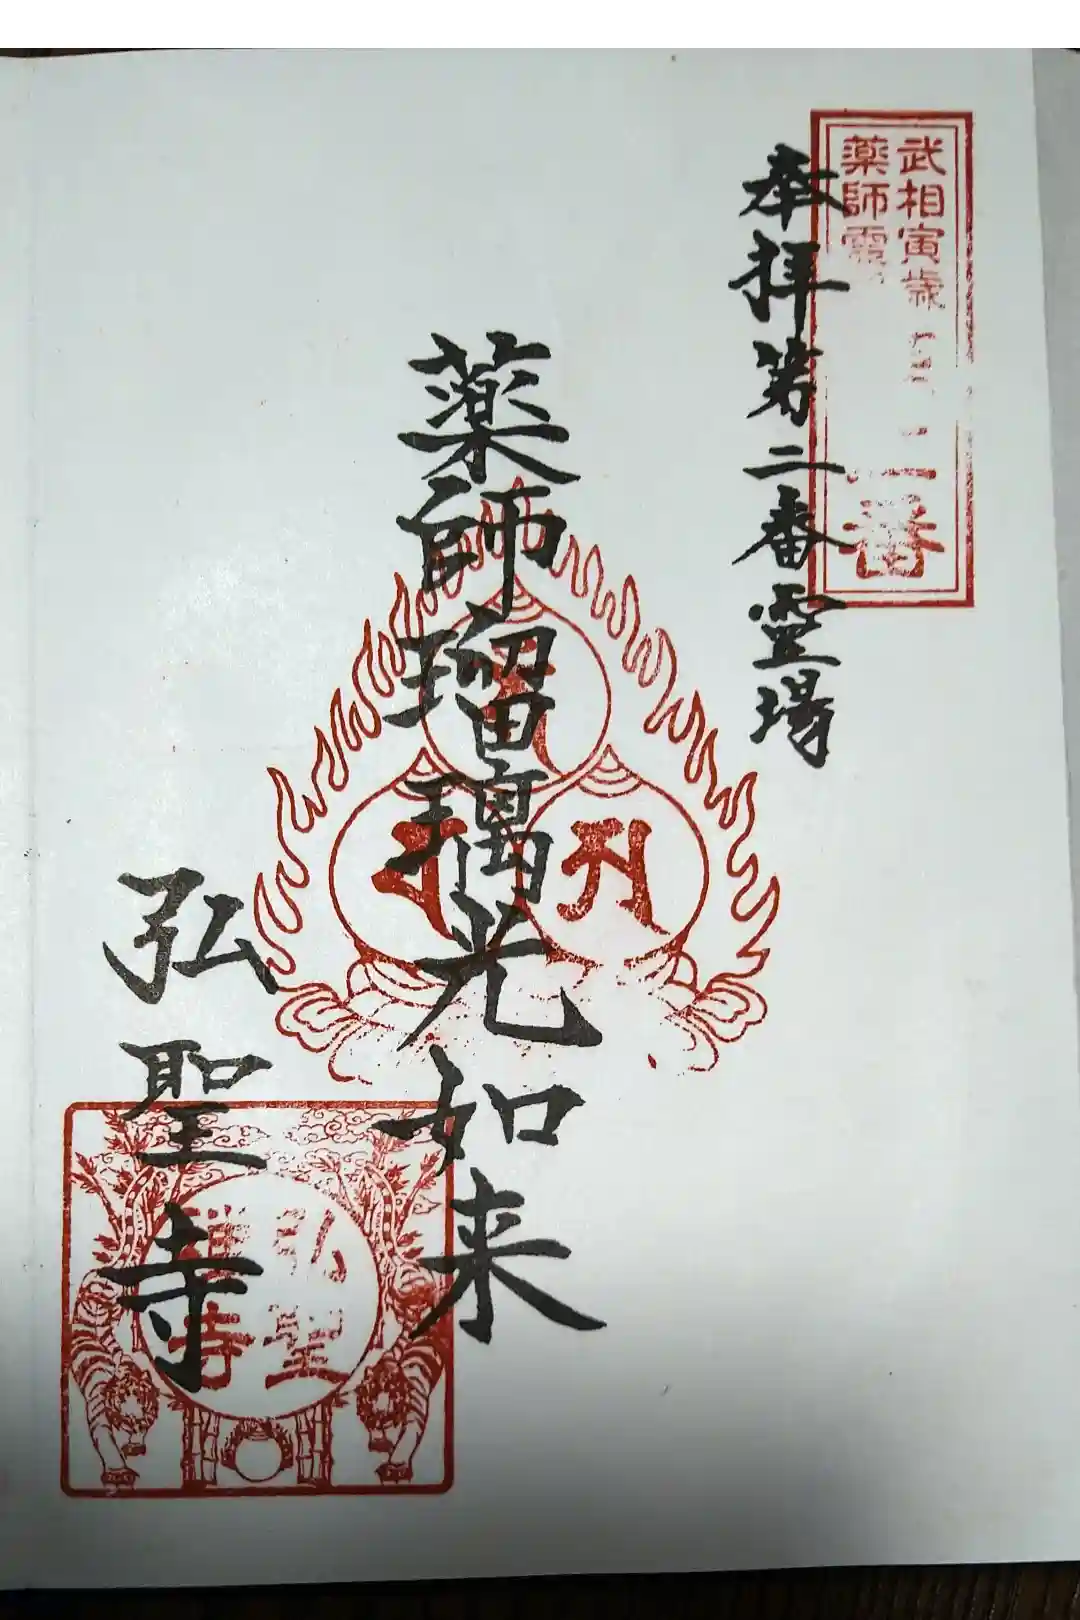 武相寅歳
薬師霊
番
奉拝第二番霊場
薬師瑠璃光如来
弘聖寺
弘聖
禅寺